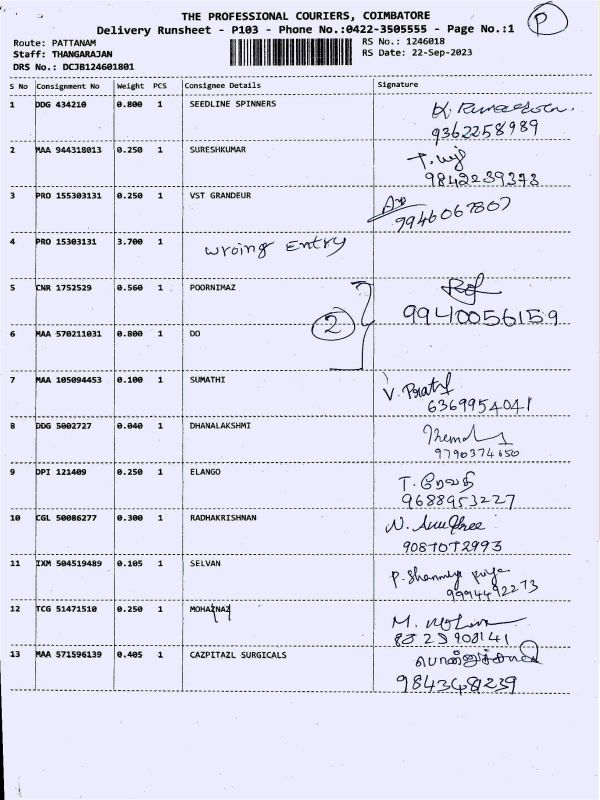 THE PROFESSIONAL COURIERS, COIMBATORE
Delivery Runsheet - P103 - Phone No.:0422-3505555 - Page No.:1
P
Route: PATTANAM
RS No.: 1246018
Staff: THANGARAJAN
RS Date: 22-Sep-2023
DRS No.: DCJB124601801
S No Consignment No Weight PCS Consignee Details Signature
1 DDG 434210 0.800 1 SEEDLINE SPINNERS
9362258989
2 MAA 944318013 0.250 1 SURESHKUMAR
9842239373
3 PRO 155303131 0.250 1 VST GRANDEUR
9946067807
4 PRO 15303131 3.700 1 wroing Entry
5 CNR 1752529 0.560 1 POORNIMAZ
2 9940056159
6 MAA 570211031 0.800 1 DO
7 MAA 105094453 0.100 1 SUMATHI
6369954041
8 DDG 5002727 0.040 1 DHANALAKSHMI
9790374650
9 DPI 121409 0.250 1 ELANGO T. ரேவதி
9688953227
10 CGL 50086277 0.300 1 RADHAKRISHNAN
9087072993
11 IXM 504519489 0.105 1 SELVAN
9994492273
12 TCG 51471510 0.250 1
13 MAA 571596139 0.405 1 CAZPITAZL SURGICALS